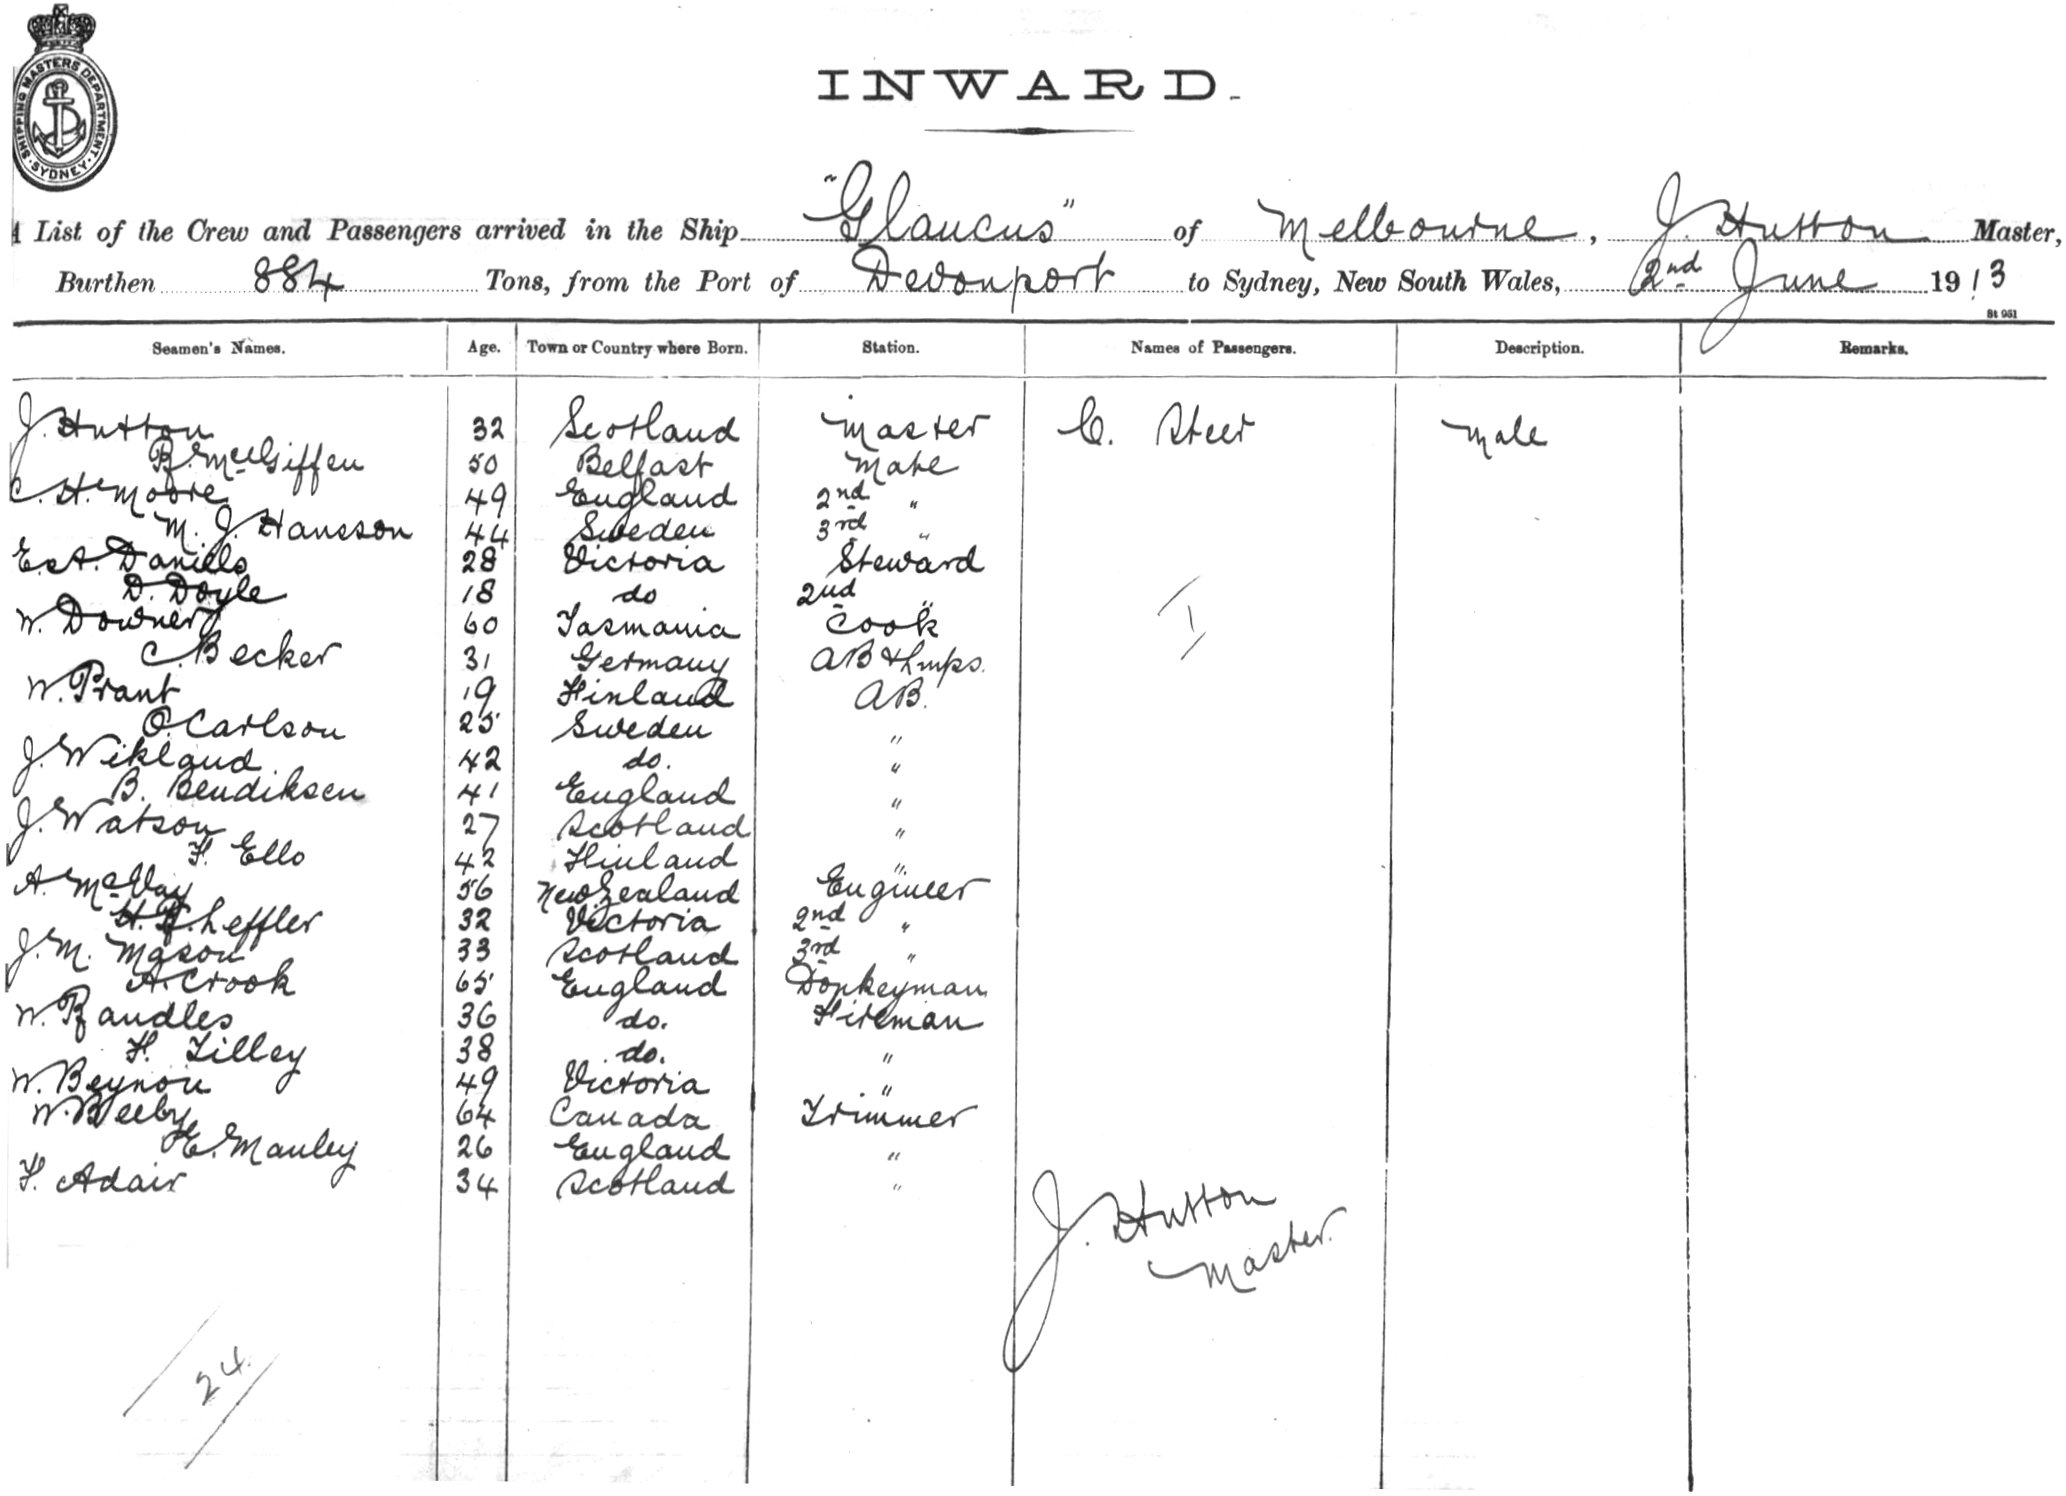 SHIPPING MASTERS DEPARTMENT. SYDNEY
INWARD.
A List of the Crew and Passengers arrived in the Ship "Glaucus" of Melbourne, J. Hutton Master,
Burthen 884 Tons, from the Port of Devonport to Sydney, New South Wales, 2nd June 1913
St 951
Seamen's Names. Age. Town or Country where Born. Station. Names of Passengers. Description. Remarks.
J. Hutton 32 Scotland Master C. Steer Male
R. McGiffen 50 Belfast Mate
C. H. Moore 49 England 2nd "
M. J. Hansson 44 Sweden 3rd "
E. A. Daniells 28 Victoria Steward
D. Doyle 18 do 2nd "
W. Downer 60 Tasmania Cook
C. Becker 31 Germany AB & Lmps.
W. Prant 19 Finland AB.
O. Carlson 25 Sweden "
J. Wikland 42 do. "
B. Bendiksen 41 England "
J. Watson 27 Scotland "
F. Ello 42 Finland "
A. McVay 56 New Zealand Engineer
H. Scheffler 32 Victoria 2nd "
J. M. Mason 33 Scotland 3rd "
A. Crook 65 England Donkeyman
W. Randles 36 do. Fireman
F. Tilley 38 do. "
W. Beynon 49 Victoria "
W. Beeby 64 Canada Trimmer
E. Manley 26 England "
F. Adair 34 Scotland "
J. Hutton
Master.
24.